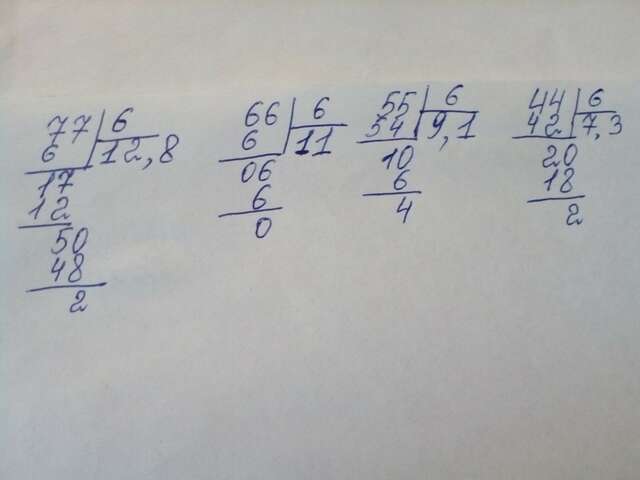 77 6
6 12,8
17
12
50
48
2
66 6
6 11
06
6
0
55 6
54 9,1
10
6
4
44 6
42 7,3
20
18
2